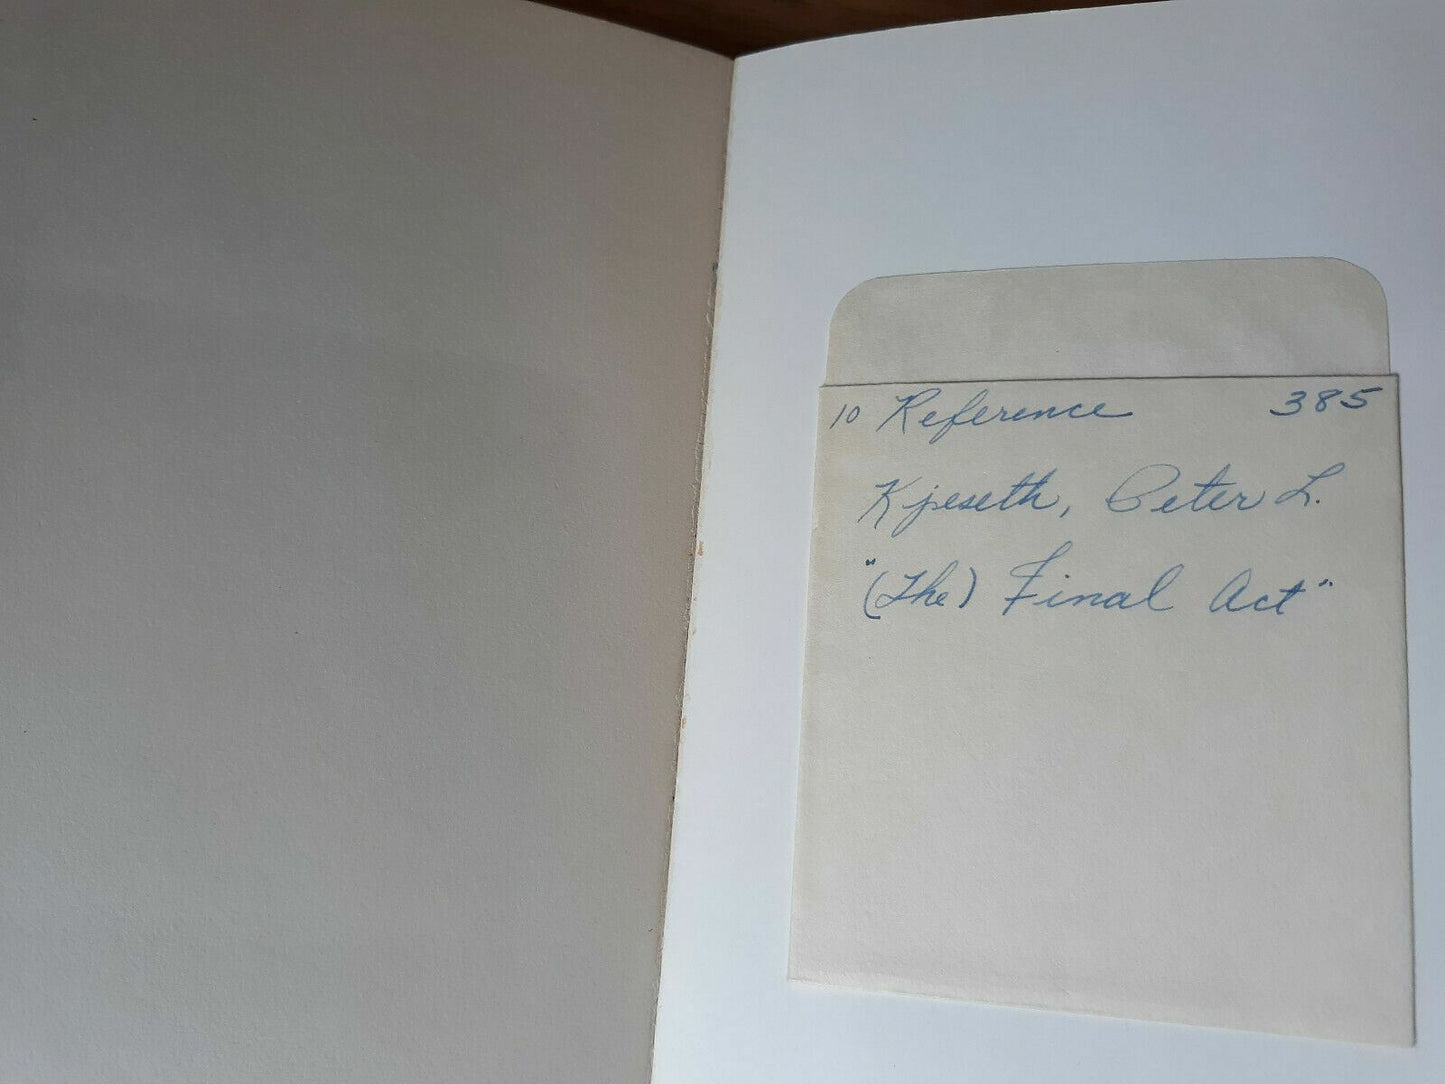 10 Reference 385
Kjeseth, Peter L.
"(The) Final Act"